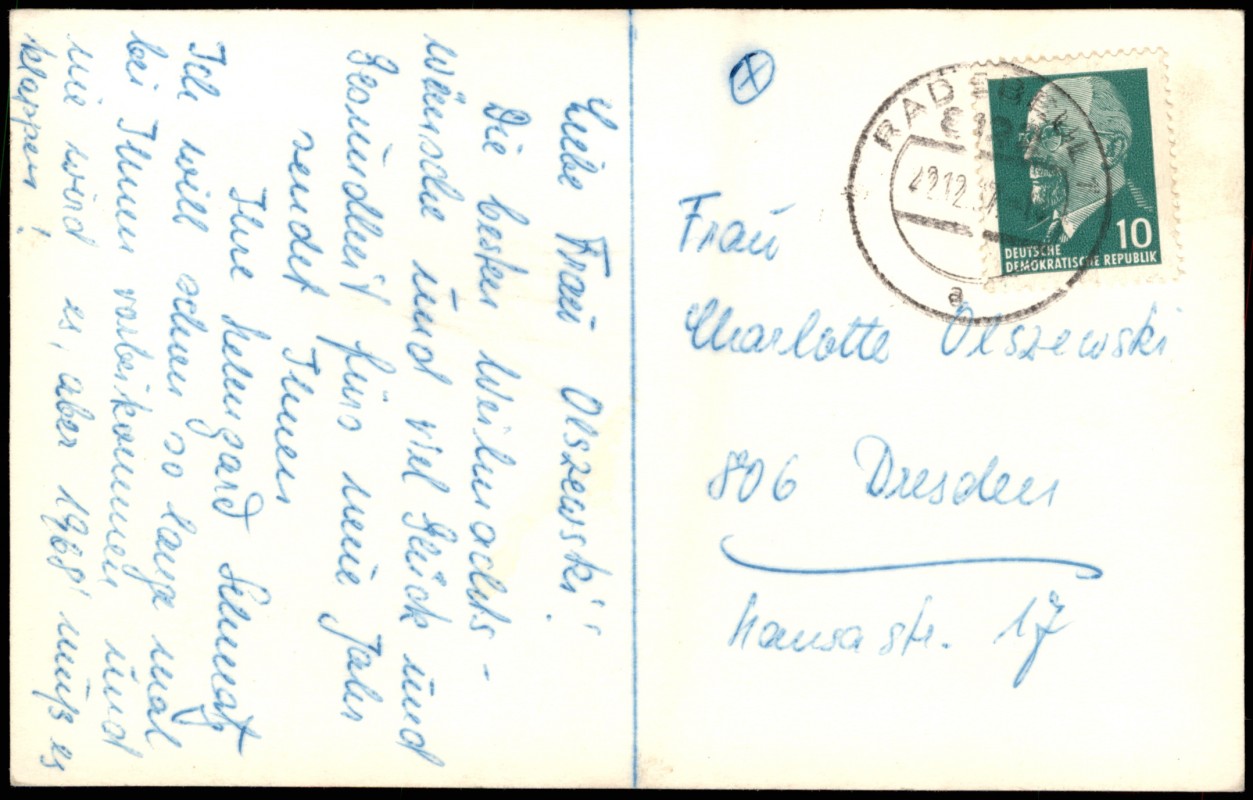 Liebe Frau Olszewski!
Die besten Weihnachts-
wünsche und viel Glück und
Gesundheit fürs neue Jahr
sendet Ihnen
Ihre
Ich will schon so lange mal
bei Ihnen vorbeikommen und
nie wird es, aber 1968 muß es
klappen!
RADEBEUL 1
12
a
10
DEUTSCHE
DEMOKRATISCHE REPUBLIK
Frau
Charlotte Olszewski
806 Dresden
Hansastr. 17